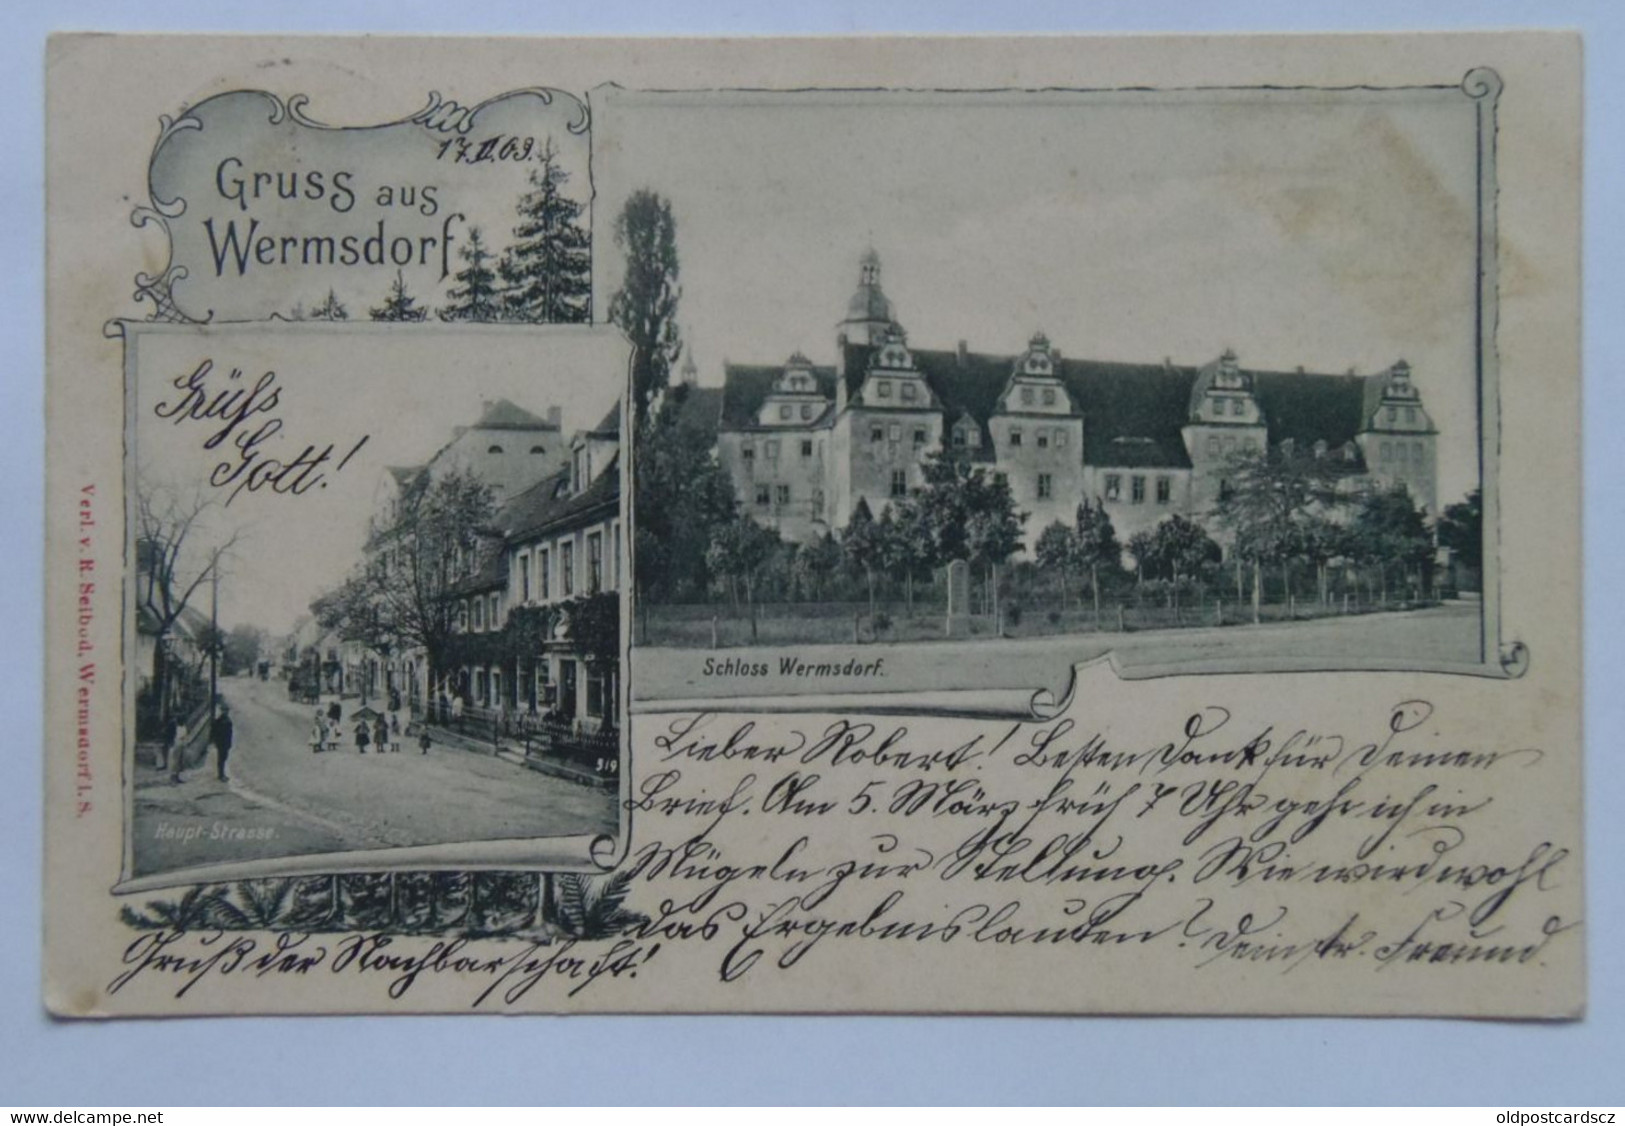 17.II.03.
Gruss aus
Wermsdorf
Grüſs
Gott!
Schloss Wermsdorf.
319
Haupt-Strasse.
Verl. v. R. Seibod, Wermsdorf i. S.
Lieber Robert! Besten Dank für Deinen
Brief. Am 5. März früh 7 Uhr gehe ich in
Mügeln zur Stellung. Wie wird wohl
das Ergebnis lauten? Dein tr. Freund.
Gruß der Nachbarschaft!
www.delcampe.net
oldpostcardscz